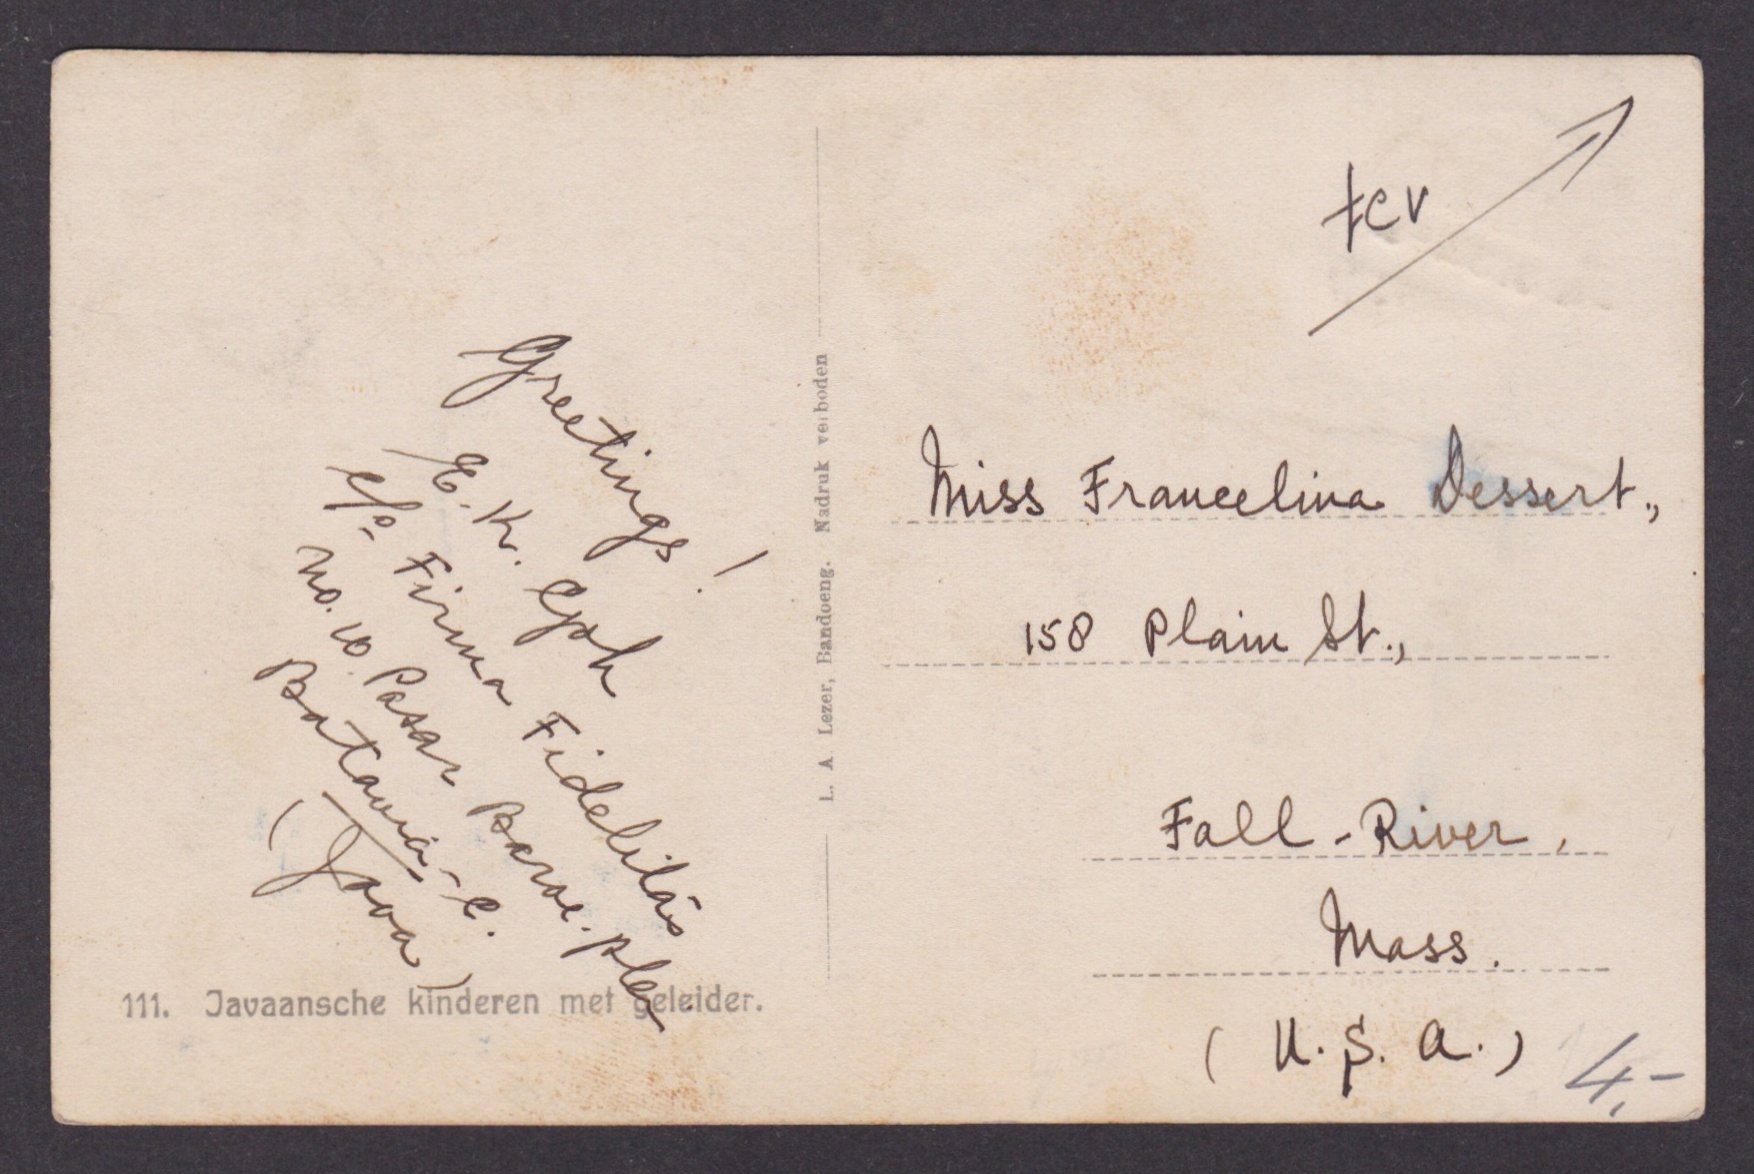 Greetings!
E. K. Goh
c/o. Firma Fidelitas
No. 10. Pasar Baroe. Plein
Batavia-C.
(Java)
111. Javaansche kinderen met geleider.
L. A. Lezer, Bandoeng. Nadruk verboden
tcv
Miss Francelina Dessert.,
158 Plain St.,
Fall-River,
Mass.
(U.S.A.)
4,-